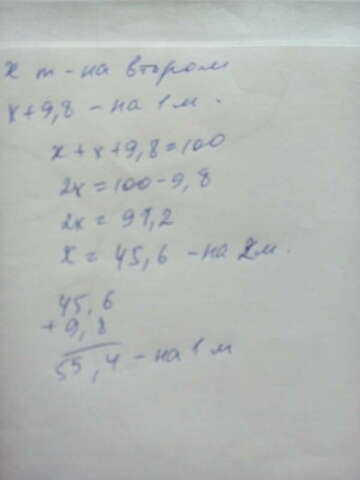 x т - на втором
x+9,8 - на 1 м.
x+x+9,8=100
2x=100-9,8
2x=91,2
x=45,6 - на 2 м.
45,6
+9,8
55,4 - на 1 м